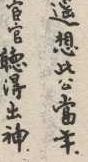 遥想此公當年
百官聽得出神